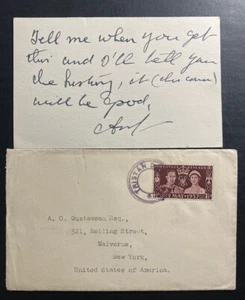 Tell me when you get
this and I'll tell you
the history, it (this cover)
will be good,
TRISTAN
MAY 1937
A. O. Gustawson Esq.,
321, Rolling Street,
Malverne,
New York,
United States of America.